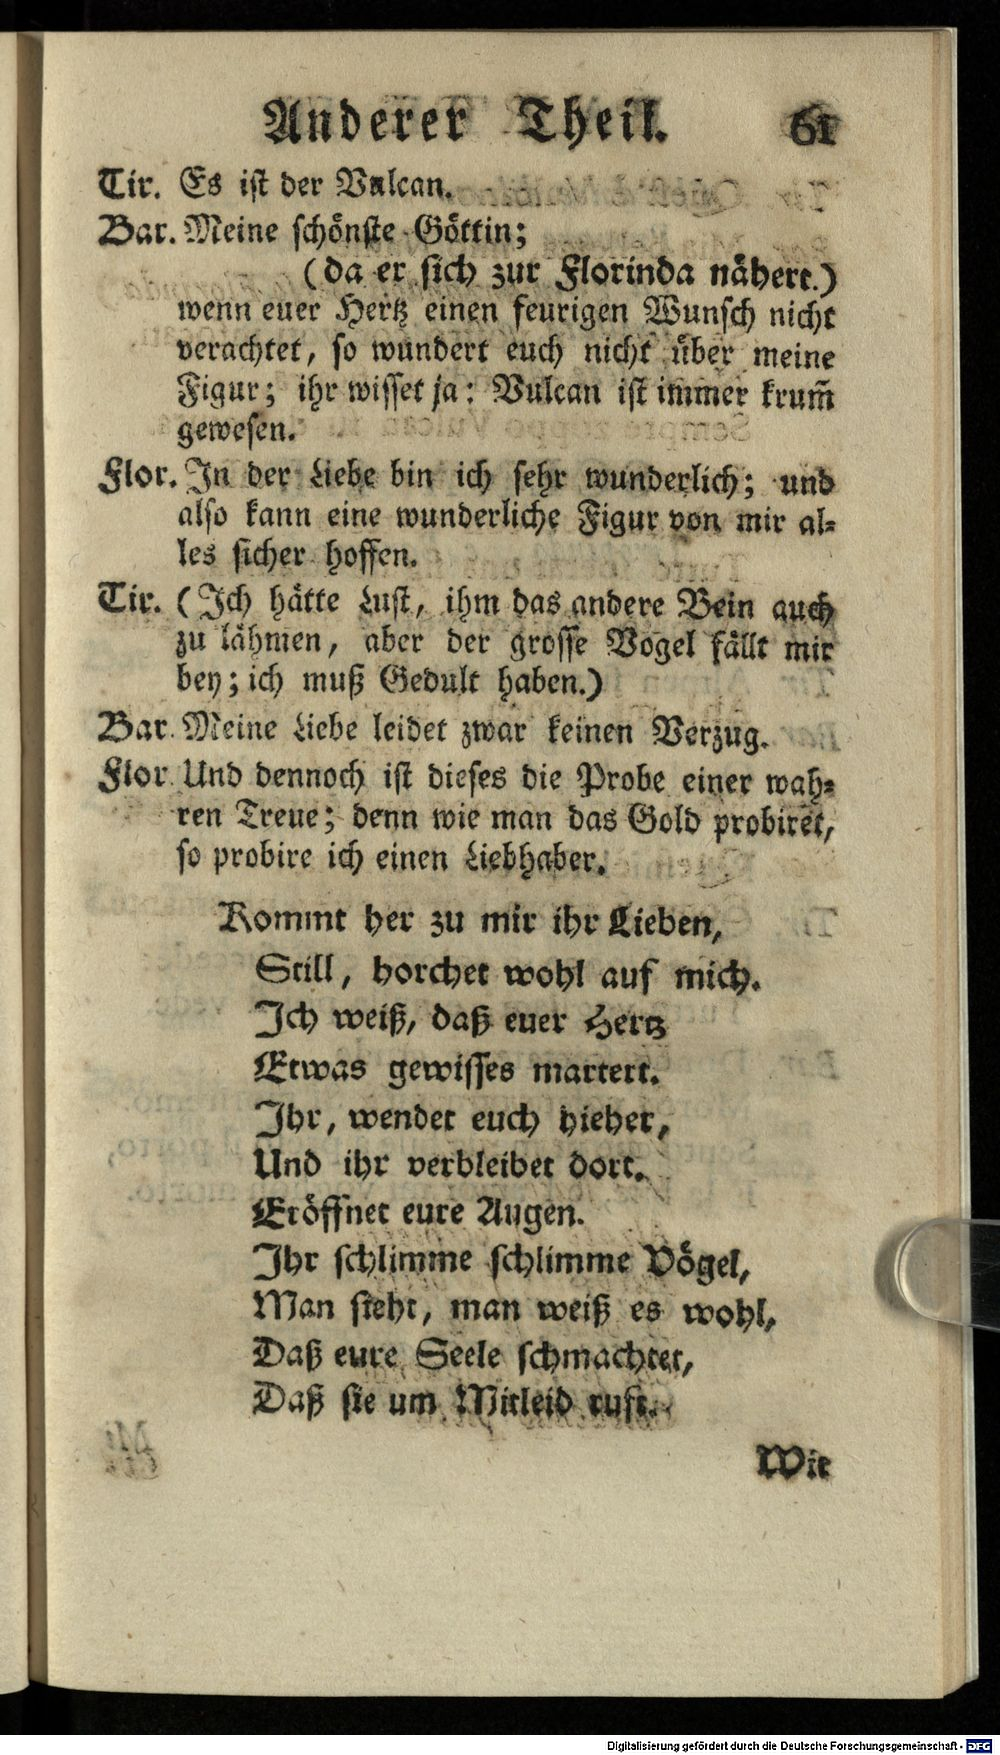 Anderer Theil. 61
Tir. Es ist der Vulcan.
Bar. Meine schönste Göttin;
(da er sich zur Florinda nähert.)
wenn euer Hertz einen feurigen Wunsch nicht
verachtet, so wundert euch nicht über meine
Figur; ihr wisset ja: Vulcan ist immer krum̃
gewesen.
Flor. In der Liebe bin ich sehr wunderlich; und
also kann eine wunderliche Figur von mir al-
les sicher hoffen.
Tir. (Ich hätte Lust, ihm das andere Bein auch
zu lähmen, aber der grosse Vogel fällt mir
bey; ich muß Gedult haben.)
Bar. Meine Liebe leidet zwar keinen Verzug.
Flor. Und dennoch ist dieses die Probe einer wah-
ren Treue; denn wie man das Gold probiret,
so probire ich einen Liebhaber.
Kommt her zu mir ihr Lieben,
Still, horchet wohl auf mich.
Ich weiß, daß euer Hertz
Etwas gewisses martert.
Ihr, wendet euch hieher,
Und ihr verbleibet dort.
Eröffnet eure Augen.
Ihr schlimme schlimme Vögel,
Man sieht, man weiß es wohl,
Daß eure Seele schmachtet,
Daß sie um Mitleid ruft.
Wir
Digitalisierung gefördert durch die Deutsche Forschungsgemeinschaft - DFG